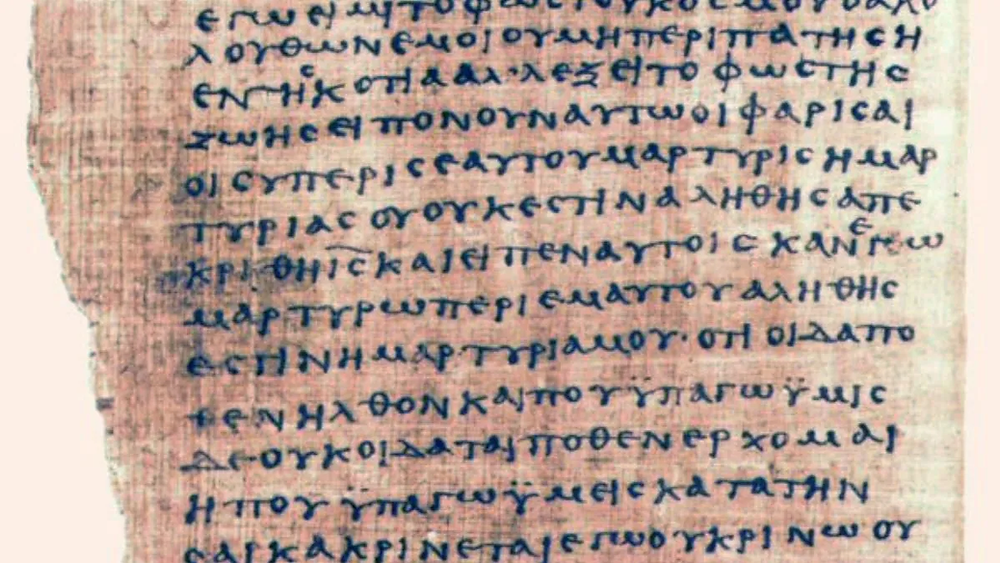 εγωειμιτοφωϲτουκοϲμουοακο
λουθωνεμοιουμηπεριπατηϲη
εντηϲκοτιααλ·λεξειτοφωϲτηϲ
ζωηϲειπονουναυτωοιφαριϲαι
οιϲυπεριϲεαυτουμαρτυριϲημαρ
τυριαϲουουκεϲτιναληθηϲαπε
κριθηι̅ϲ̅καιειπεναυτοιϲκανεγω
μαρτυρωπεριεμαυτουαληθηϲ
εϲτινημαρτυριαμου·οτιοιδαπο
θενηλθονκαιπουϋπαγωϋμιϲ
δεουκοιδαταιποθενερχομαι
ηπουϋπαγωϋμειϲκατατην
ϲαρκακρινεταιεγωουκρινωου